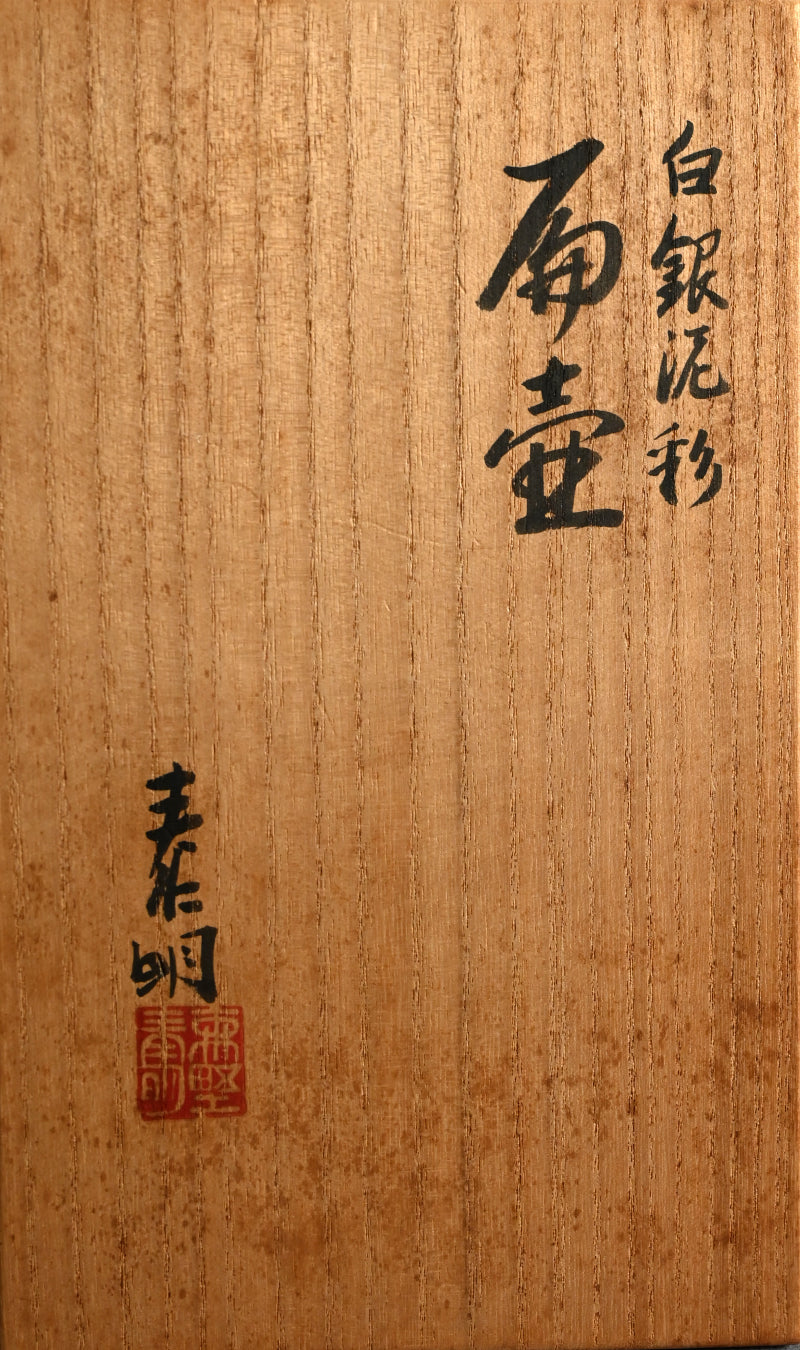 白銀泥彩
扁壷
泰明